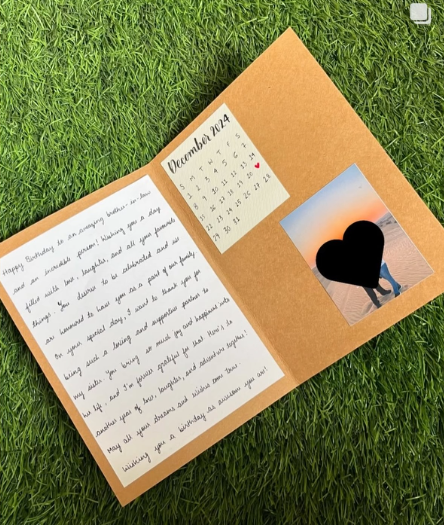 Happy Birthday to an amazing brother-in-law
and an incredible person! Wishing you a day
filled with love, laughter, and all your favourite
things. You deserve to be celebrated and we
are honoured to have you as a part of our family.
On your special day, I want to thank you for
being such a loving and supportive partner to
my sister. You bring so much joy and happiness into
her life, and I'm forever grateful for that. Here's to
another year of love, laughter, and adventure together!
May all your dreams and wishes come true.
Wishing you a birthday as awesome you are!
December 2024
S M T W T F S
1 2 3 4 5 6 7
8 9 10 11 12 13 14
15 16 17 18 19 20
22 23 24 25 26 27 28
29 30 31